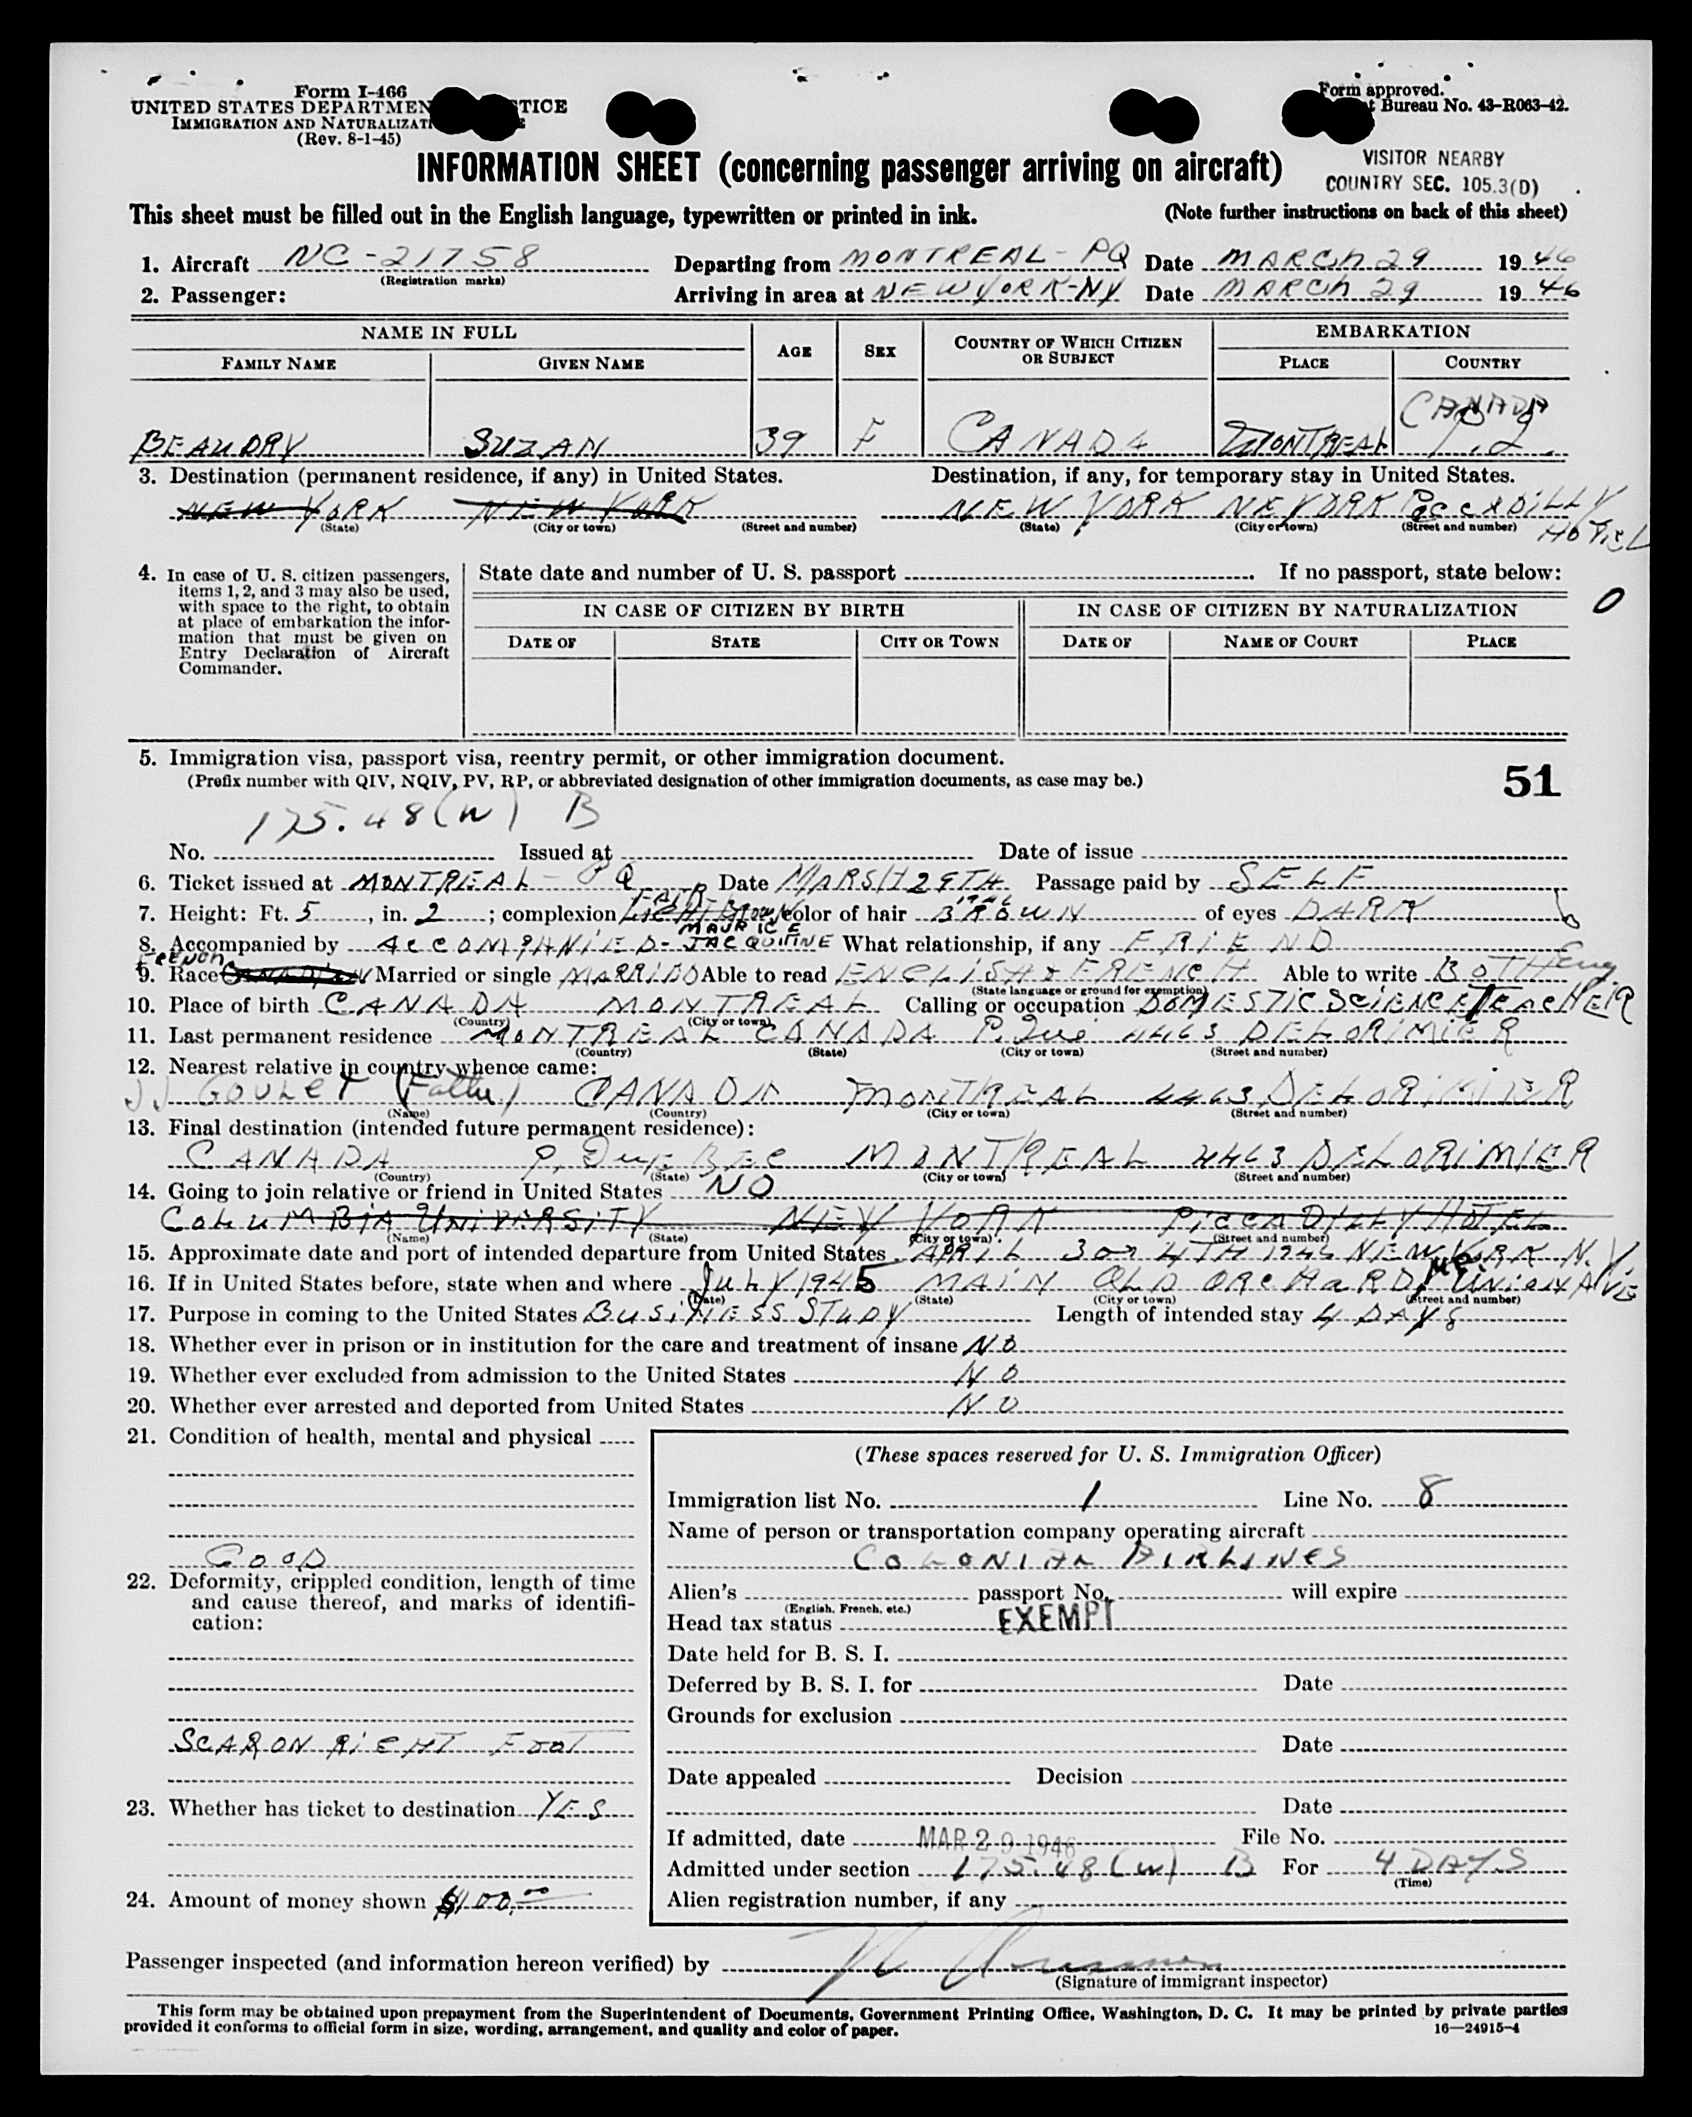 Form I-466
UNITED STATES DEPARTMEN TICE
IMMIGRATION AND NATURALIZATI E
(Rev. 8-1-45)
Form approved.
t Bureau No. 43-R063-42.
INFORMATION SHEET (concerning passenger arriving on aircraft)
VISITOR NEARBY
COUNTRY SEC. 105.3(D)
This sheet must be filled out in the English language, typewritten or printed in ink. (Note further instructions on back of this sheet)
1. Aircraft NC-21758 Departing from MONTREAL-PQ Date MARCH 29 1946
(Registration marks)
2. Passenger: Arriving in area at NEW YORK-NY Date MARCH 29 1946
NAME IN FULL AGE SEX COUNTRY OF WHICH CITIZEN OR SUBJECT EMBARKATION
FAMILY NAME GIVEN NAME PLACE COUNTRY
BEAUDRY SUZAN 39 F CANADA MONTREAL CANADA P.Q.
3. Destination (permanent residence, if any) in United States. Destination, if any, for temporary stay in United States.
NEW YORK NEW YORK NEW YORK NEYORK PICCADILLY HOTEL
(State) (City or town) (Street and number) (State) (City or town) (Street and number)
4. In case of U. S. citizen passengers, items 1, 2, and 3 may also be used, with space to the right, to obtain at place of embarkation the information that must be given on Entry Declaration of Aircraft Commander.
State date and number of U. S. passport . If no passport, state below:
0
IN CASE OF CITIZEN BY BIRTH IN CASE OF CITIZEN BY NATURALIZATION
DATE OF STATE CITY OR TOWN DATE OF NAME OF COURT PLACE
5. Immigration visa, passport visa, reentry permit, or other immigration document.
(Prefix number with QIV, NQIV, PV, RP, or abbreviated designation of other immigration documents, as case may be.)
51
175.48(W) B
No. Issued at Date of issue
6. Ticket issued at MONTREAL-PQ Date MARSH 29TH 1946 Passage paid by SELF
7. Height: Ft. 5, in. 2; complexion FAIR color of hair BROWN of eyes DARK
8. Accompanied by ACCOMPANIED-MAURICE JACQUTINE What relationship, if any FRIEND
9. Race FRENCH CANADIAN Married or single MARRIED Able to read ENGLISH & FRENCH Able to write BOTH
(State language or ground for exemption)
10. Place of birth CANADA MONTREAL Calling or occupation DOMESTIC SCIENCE TEACHER
(Country) (City or town)
11. Last permanent residence MONTREAL CANADA P. Que 4463 DELORIMIER
(Country) (State) (City or town) (Street and number)
12. Nearest relative in country whence came:
JJ GOULET (Father) CANADA MONTREAL 4463 DELORIMIER
(Name) (Country) (City or town) (Street and number)
13. Final destination (intended future permanent residence):
CANADA P. QUEBEC MONTREAL 4463 DELORIMIER
(Country) (State) (City or town) (Street and number)
14. Going to join relative or friend in United States NO
COLUMBIA UNIVERSITY NEW YORK PICCADILLY HOTEL
(Name) (State) (City or town) (Street and number)
15. Approximate date and port of intended departure from United States APRIL 3 or 4TH 1946 NEW YORK N.Y.
16. If in United States before, state when and where JULY 1945 MAIN OLD ORCHARD, ME. UNION AVE
(Date) (State) (City or town) (Street and number)
17. Purpose in coming to the United States BUSINESS STUDY Length of intended stay 4 DAYS
18. Whether ever in prison or in institution for the care and treatment of insane NO
19. Whether ever excluded from admission to the United States NO
20. Whether ever arrested and deported from United States NO
21. Condition of health, mental and physical
GOOD
22. Deformity, crippled condition, length of time and cause thereof, and marks of identification:
SCAR ON RIGHT FOOT
23. Whether has ticket to destination YES
24. Amount of money shown $100.00
(These spaces reserved for U. S. Immigration Officer)
Immigration list No. 1 Line No. 8
Name of person or transportation company operating aircraft
COLONIAL AIRLINES
Alien's passport No. will expire
(English, French, etc.)
Head tax status EXEMPT
Date held for B. S. I.
Deferred by B. S. I. for Date
Grounds for exclusion
Date
Date appealed Decision
Date
If admitted, date MAR 29 1946 File No.
Admitted under section 175.48(W) B For 4 DAYS
(Time)
Alien registration number, if any
Passenger inspected (and information hereon verified) by
(Signature of immigrant inspector)
This form may be obtained upon prepayment from the Superintendent of Documents, Government Printing Office, Washington, D. C. It may be printed by private parties
provided it conforms to official form in size, wording, arrangement, and quality and color of paper. 16—24915-4